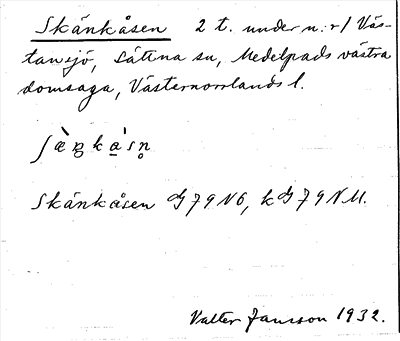 Skänkåsen 2 t. under n:r 1 Väs-
tansjö, Sättna sn, Medelpads västra
domsaga, Västernorrlands l.
Skänkåsen G 79 N6, k G 79 NM.
Valter Jansson 1932.